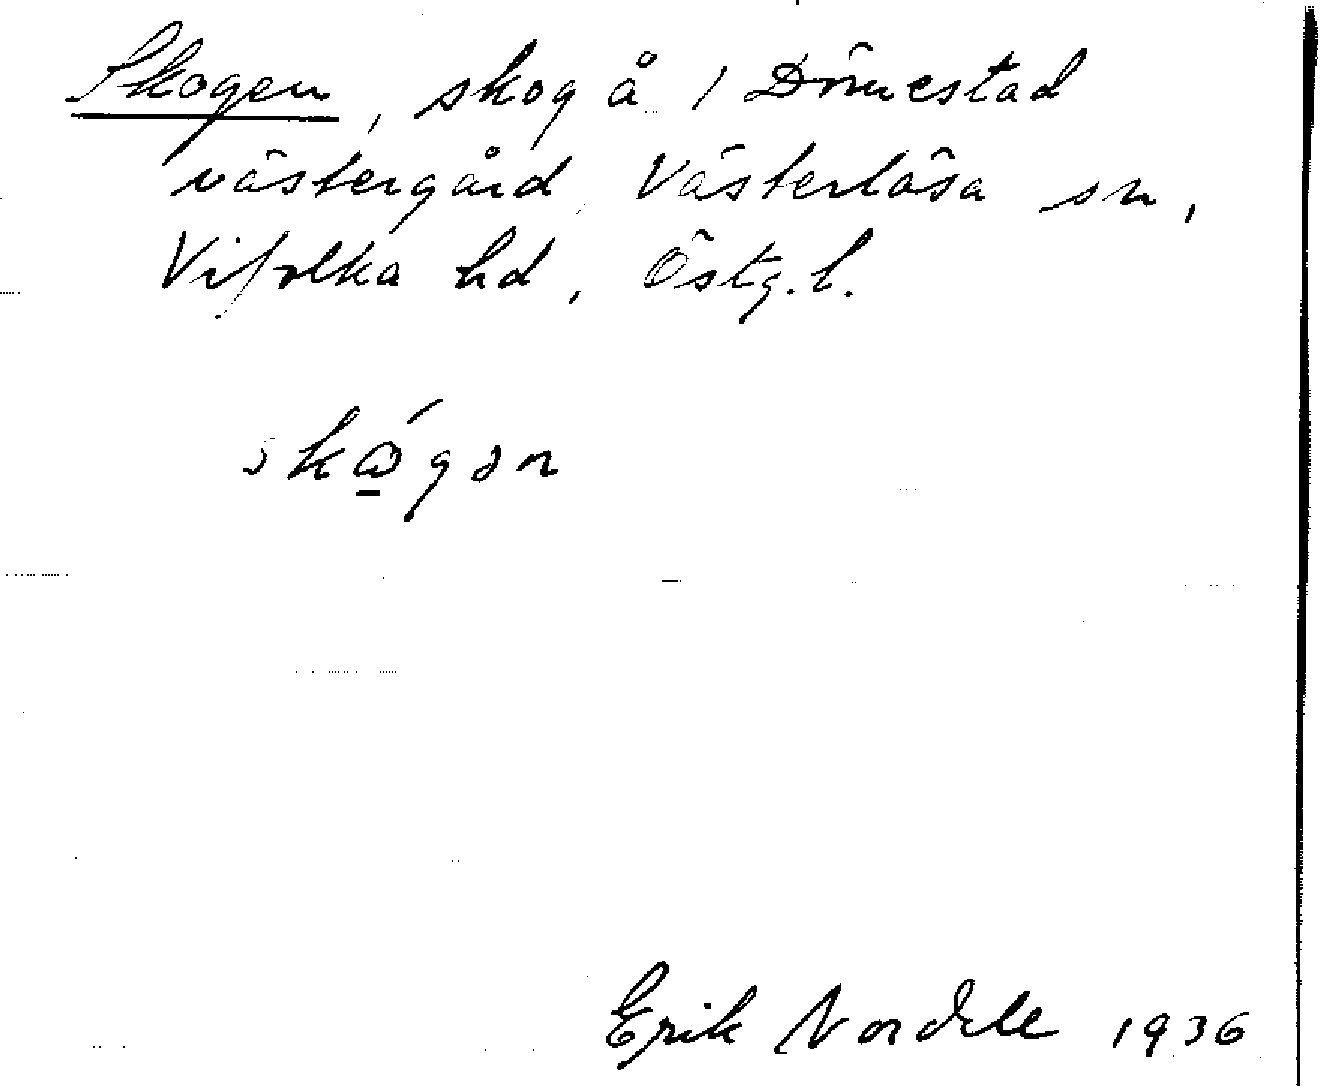 Skogen, skog å 1 Dömestad
västergård, Västerlösa sn,
Vifolka hd, Östg. l.
Erik Nordell 1936